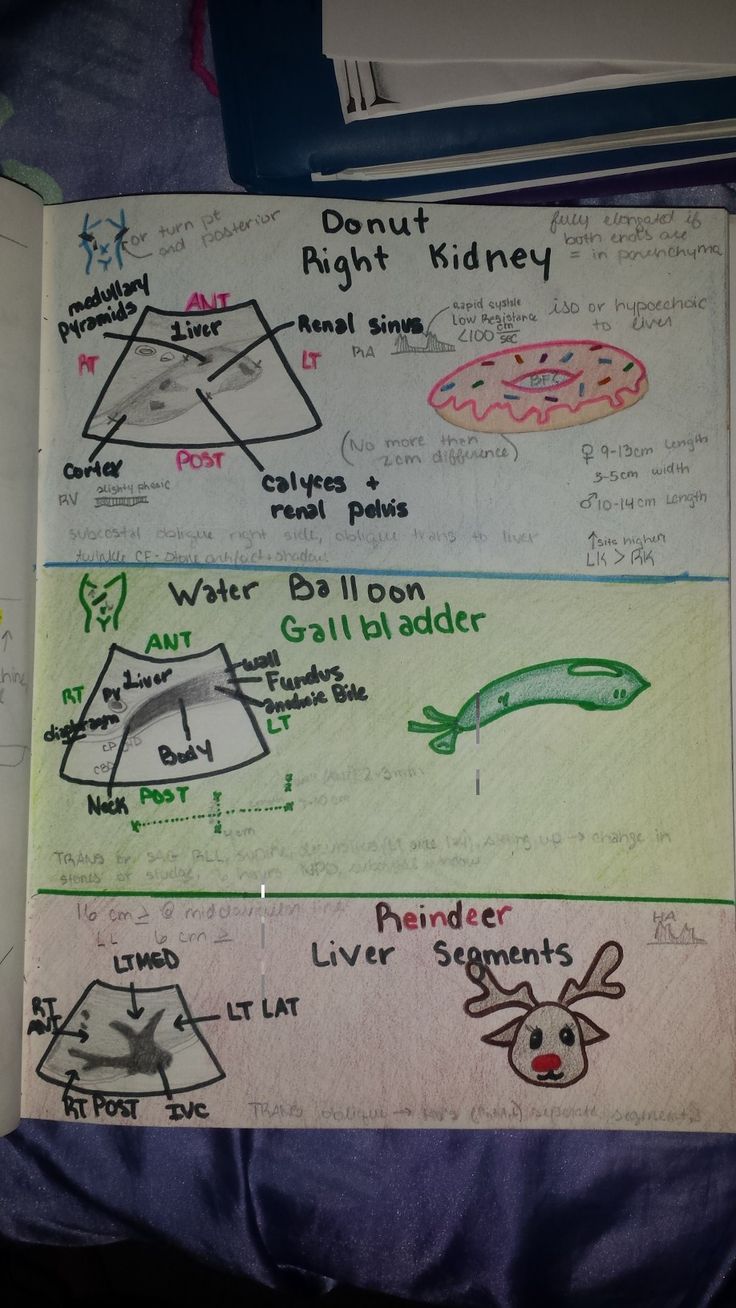 Donut
Right Kidney
or turn pt
and posterior
fully elongated if
both ends are
= in parenchyma
medullary
pyramids
ANT
Liver
Renal sinus
RT
LT
Rapid systole
Low Resistance
<100 cm/sec
RA
iso or hypoechoic
to liver
Cortex
POST
calyces +
renal pelvis
(No more than
2cm difference)
♀ 9-13cm length
3-5cm width
♂ 10-14cm length
RV
slightly phasic
↑ sits higher
LK > RK
subcostal oblique right side, oblique trans to liver
twinkle CF - stone artifact + shadow
Water Balloon
Gallbladder
ANT
wall
Fundus
anechoic Bile
RT
PV
Liver
LT
diaphragm
Body
CBD
Neck
POST
4cm
TRANS or SAG RLL, supine, decubitus (LT side), sitting up → change in
stones or sludge, 6 hours NPO, subcostal window
16 cm ≥ @ midclavicular
LL 6 cm ≥
Reindeer
Liver Segments
HA
LT MED
RT
ANT
LT LAT
RT POST
IVC
TRANS oblique → separate segments